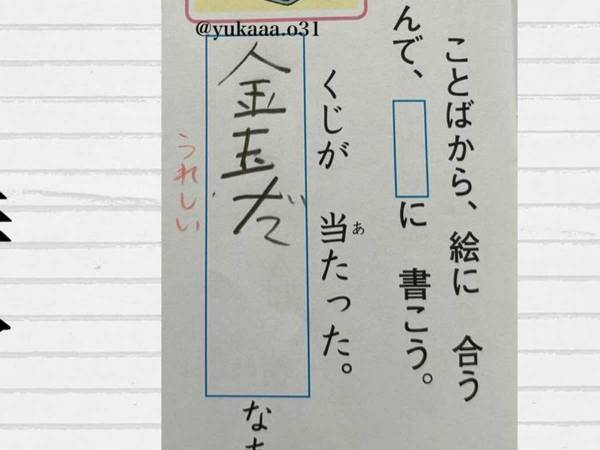 @yukaaa.o31
ことばから、絵に 合う
んで、に 書こう。
くじが 当たった。
あ
金玉だ
うれしい